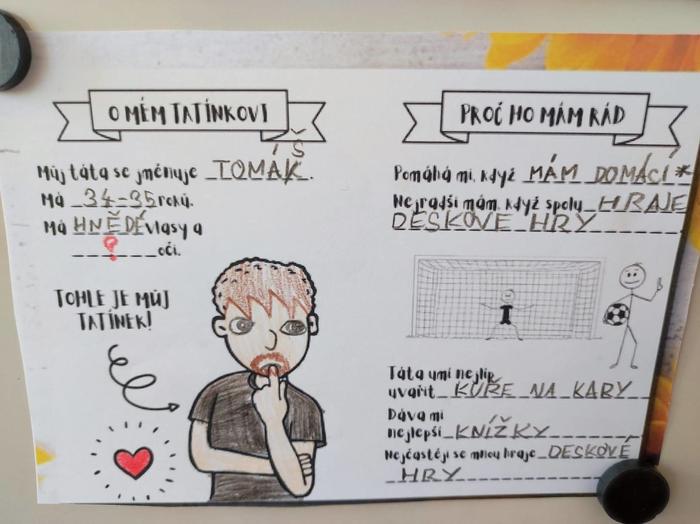 O MÉM TATÍNKOVI
Můj táta se jmenuje TOMÁŠ.
Má 34-35 roků.
Má HNĚDÉ vlasy a
? očí.
TOHLE JE MŮJ
TATÍNEK!
PROČ HO MÁM RÁD
Pomáhá mi, když MÁM DOMÁCÍ *
Nejradši mám, když spolu HRAJE
DESKOVE HRY
Táta umí nejlíp
uvařit KUŘE NA KARY
Dává mi
nejlepší KNÍŽKY
Nejčastěji se mnou hraje DESKOVÉ
HRY